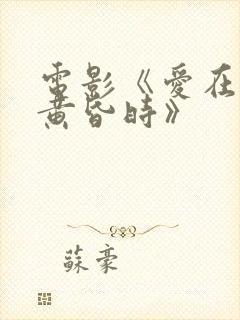 電影《愛在
黃昏時》
蘇豪